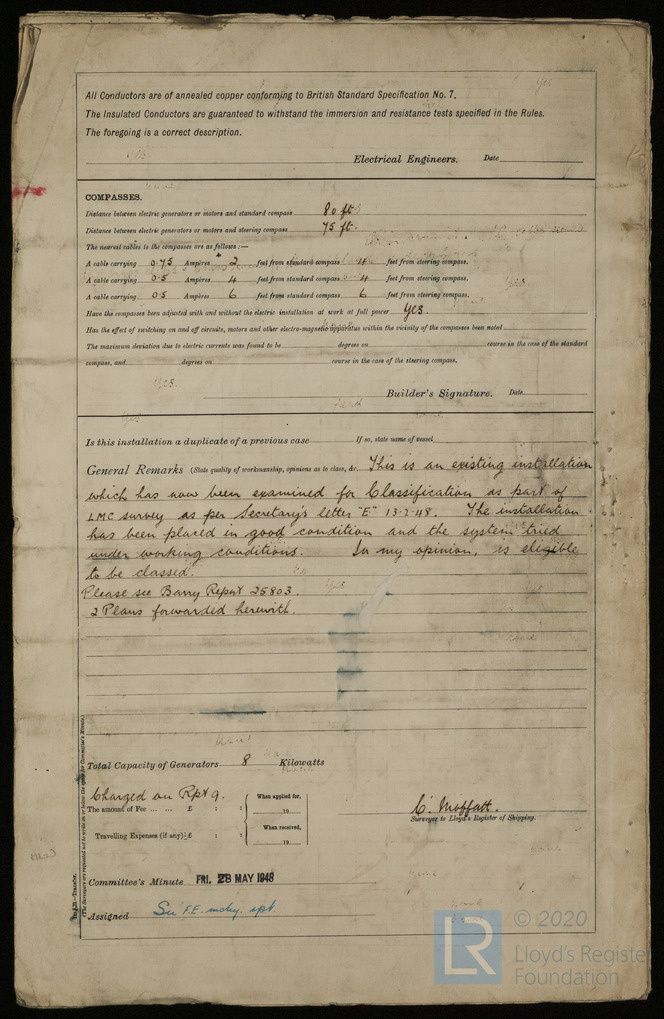 All Conductors are of annealed copper conforming to British Standard Specification No. 7.
The Insulated Conductors are guaranteed to withstand the immersion and resistance tests specified in the Rules.
The foregoing is a correct description.
Electrical Engineers. Date
COMPASSES.
Distance between electric generators or motors and standard compass 80 ft.
Distance between electric generators or motors and steering compass 75 ft.
The nearest cables to the compasses are as follows:—
A cable carrying 0.75 Ampères 2 feet from standard compass 4 feet from steering compass.
A cable carrying 0.5 Ampères 4 feet from standard compass 4 feet from steering compass.
A cable carrying 0.5 Ampères 6 feet from standard compass 6 feet from steering compass.
Have the compasses been adjusted with and without the electric installation at work at full power Yes.
Has the effect of switching on and off circuits, motors and other electro-magnetic apparatus within the vicinity of the compasses been noted
The maximum deviation due to electric currents was found to be degrees on course in the case of the standard
compass, and degrees on course in the case of the steering compass.
Builder's Signature. Date
Is this installation a duplicate of a previous case If so, state name of vessel
General Remarks (State quality of workmanship, opinions as to class, &c. This is an existing installation
which has now been examined for Classification as part of
LMC survey as per Secretary's letter "E" 13.2.48. The installation
has been placed in good condition and the system tried
under working conditions. In my opinion, is eligible
to be classed.
Please see Barry Report 25803.
2 Plans forwarded herewith.
Total Capacity of Generators 8 Kilowatts
Charged on Rpt 9.
The amount of Fee ... ... £ : : When applied for,
19
Travelling Expenses (if any) £ : : When received,
19
C. Moffatt.
Surveyor to Lloyd's Register of Shipping.
Committee's Minute FRI. 28 MAY 1948
Assigned See F.E. mchy. rpt.
(The Surveyors are requested not to write on or below the space for Committee's Minute.)
© 2020
LR
Lloyd's Register
Foundation